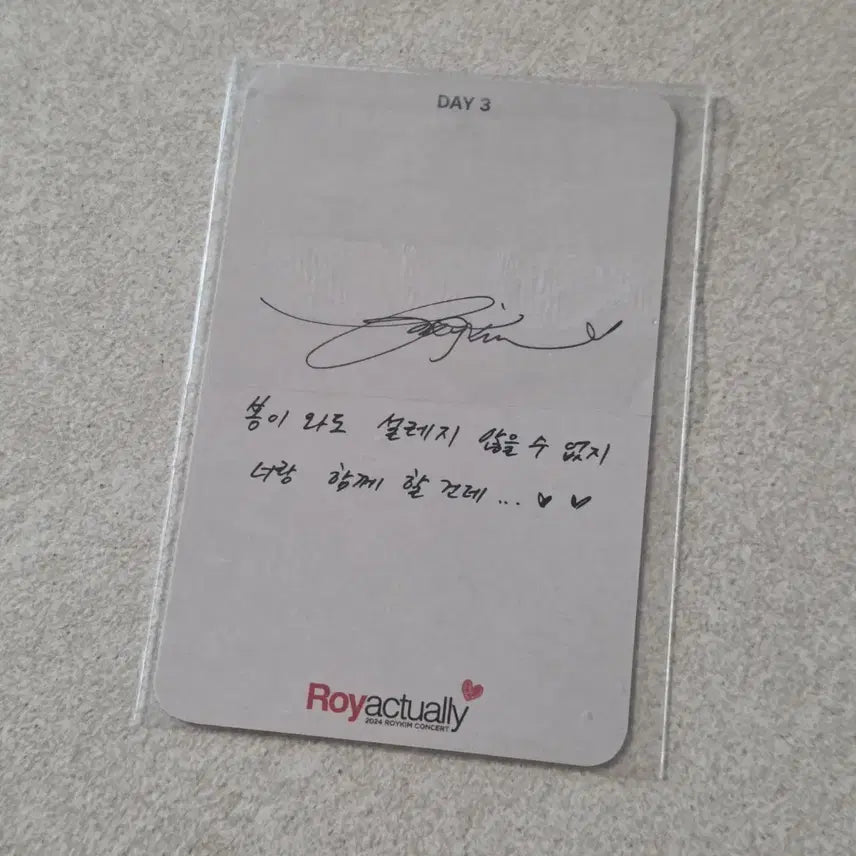 DAY 3
Roykim
봄이 와도 설레지 않을 수 없지
너랑 함께 할 건데... ♥ ♥
Royactually
2024 ROYKIM CONCERT